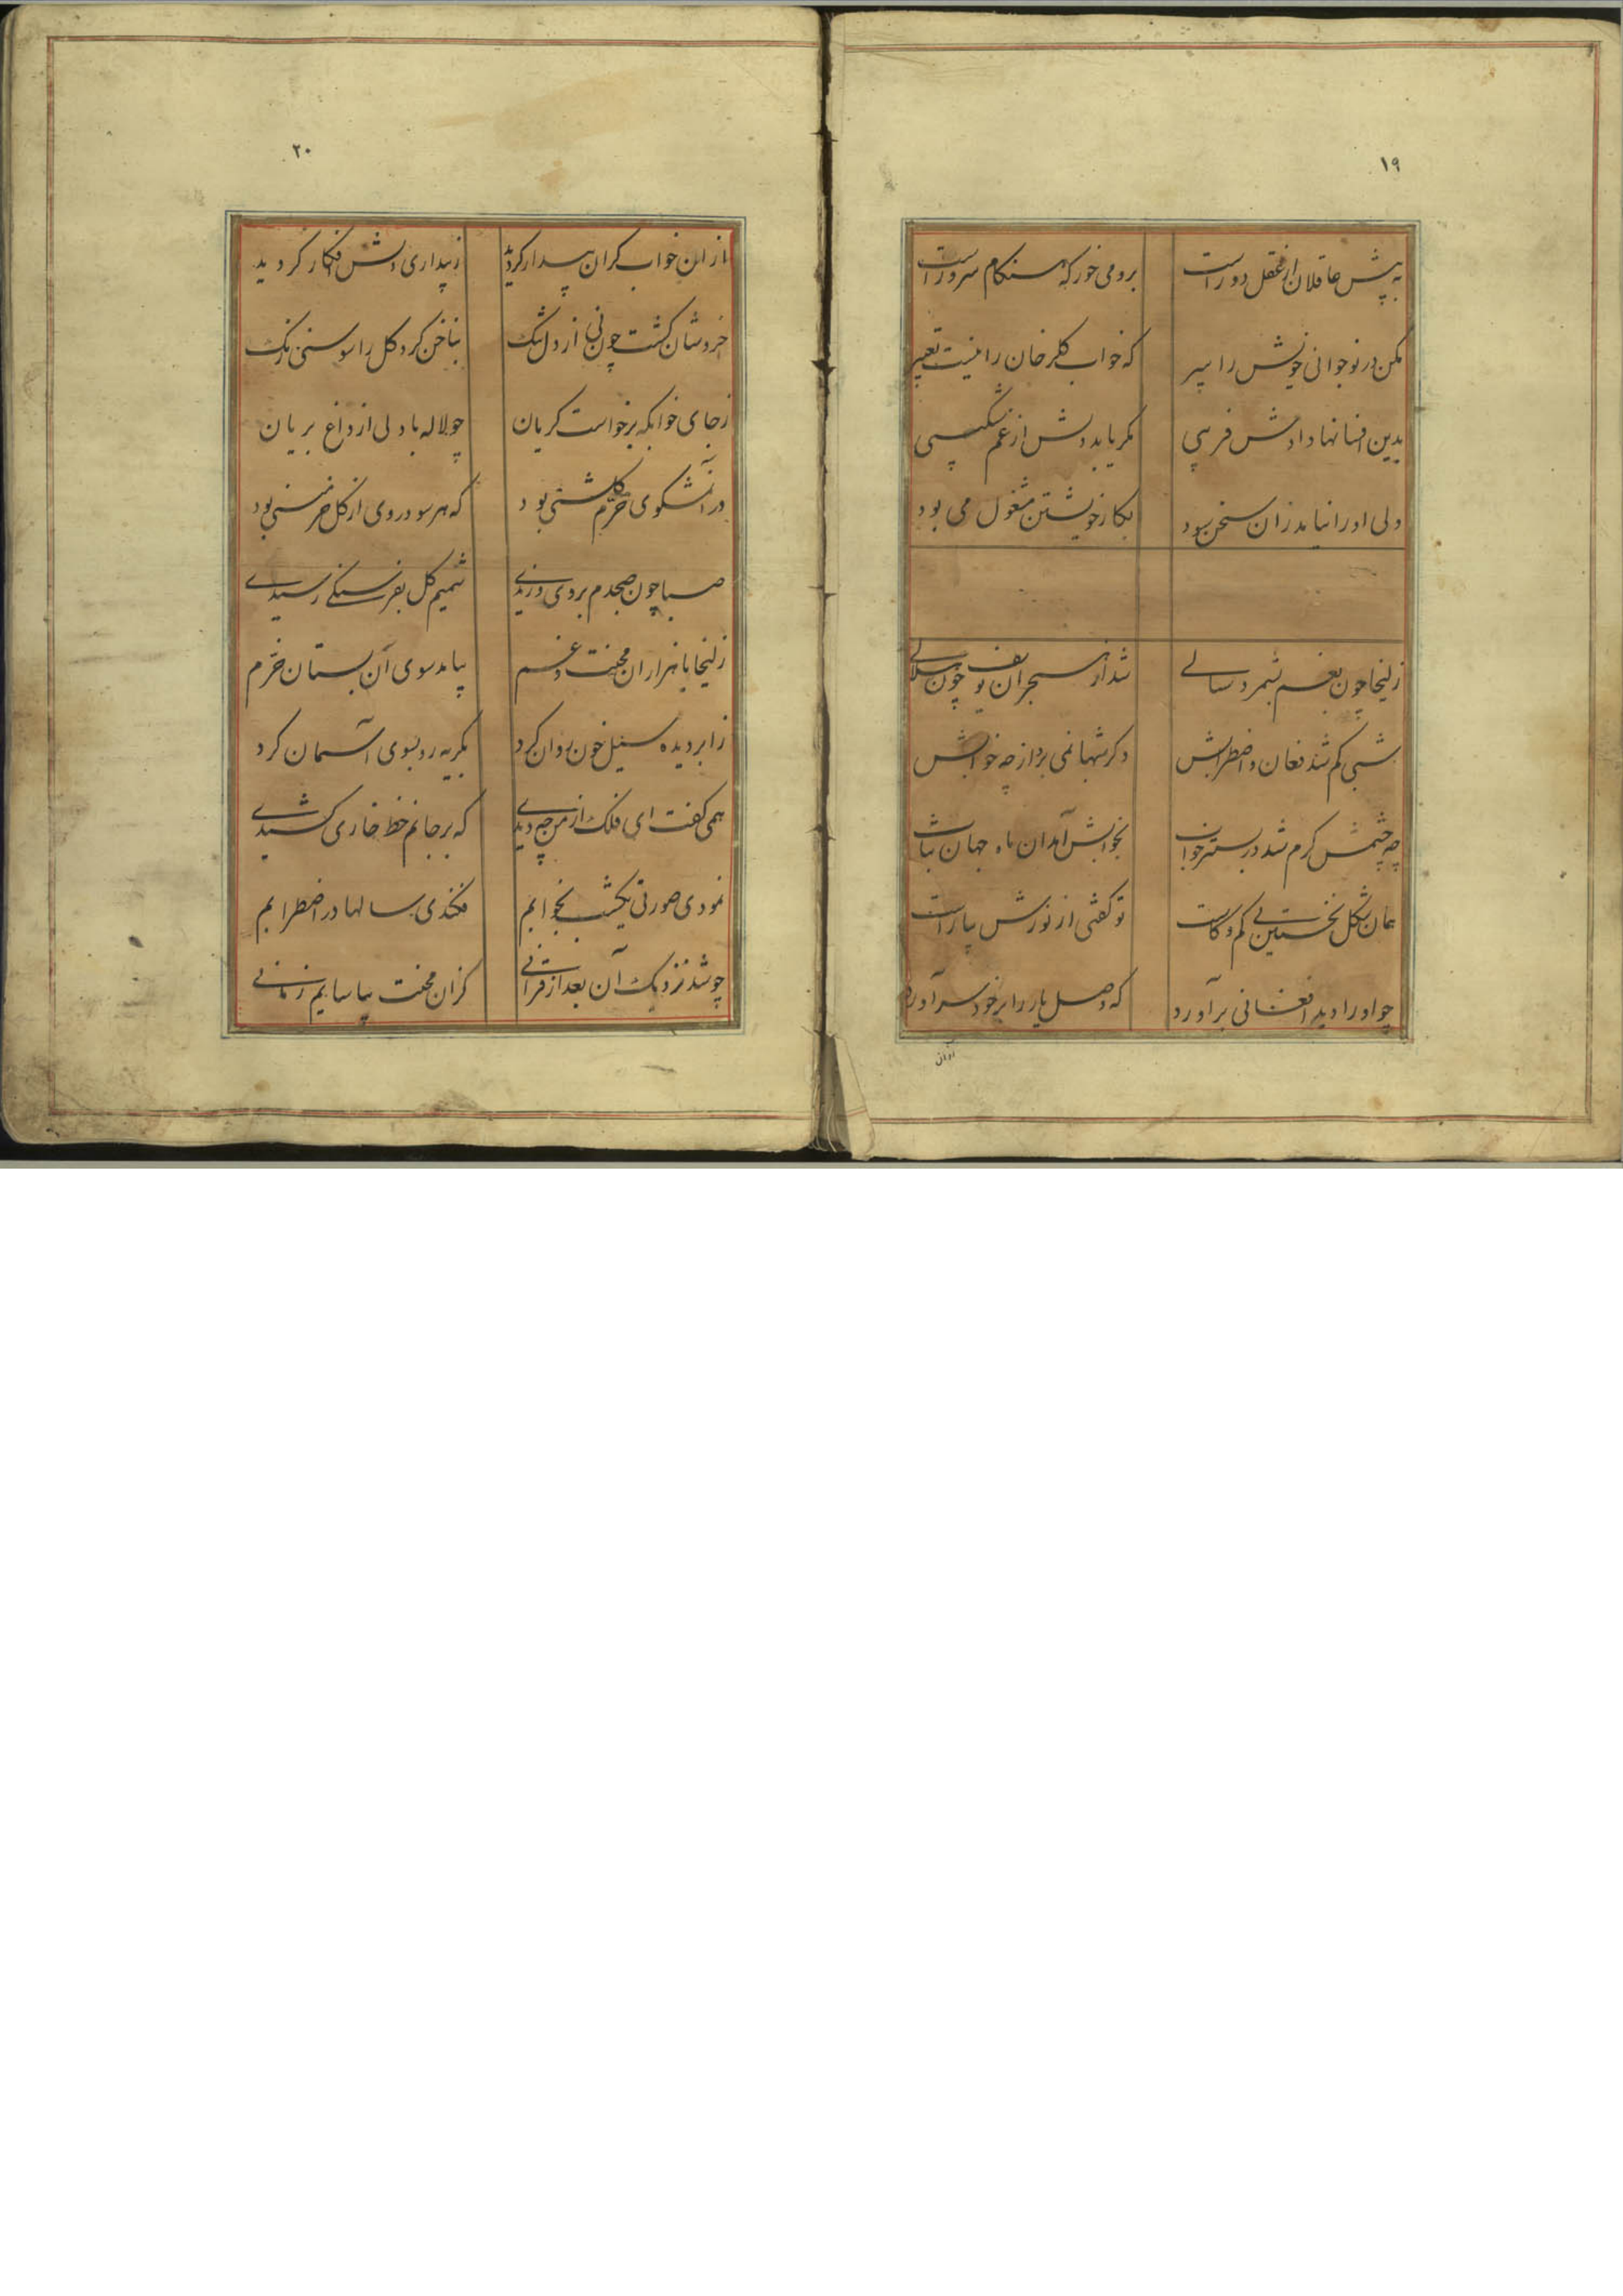 ۱۹
به پیش عاقلان از عقل دور است برو می خور که هنگام سرور است
مکن در نوجوانی خویش را پیر که خواب گلرخان را نیست تعبیر
بدین افسانها دادش فریبی مگر یابد دلش از غم شکیبی
ولی او را نیامد زان سخن سود بکار خویشتن مشغول می بود
زلیخا چون بغم بشمرد سالی شد از هجران یوسف چون هلالی
شبی کم شد فغان و اضطرابش دگر شبها نمی برد ار چه خوابش
چه چشمش گرم شد در بستر خواب بخوابش آمد ان ماه جهان تاب
همان شکل نخستین بی کم و کاست تو گفتی از نورش بیاراست
چو او را دید افغانی برآورد که وصل یار را بر خود سرآورد
ازان
۲۰
از ان خواب گران بیدار گردید ز بیداری دلش افکار گردید
خروشان گشت چون نی از دل تنگ بناخن کرد گل را سوسنی رنگ
ز جای خوابگه برخواست گریان چو لاله با دلی از داغ بریان
در آن مشکوی خرم گلشنی بود که هر سو در وی از گل خرمنی بود
صبا چون صبحدم بر وی وزیدی شمیم گل بفرسنگی رسیدی
زلیخا با هزاران محنت و غم بیامد سوی آن بستان خرم
ز ابر دیده سیل خون روان کرد بگریه رو بسوی آسمان کرد
همی گفت ای فلک از من چه دیدی که بر جانم خط خاری کشیدی
نمودی صورتی یکشب بخوابم فکندی سالها در اضطرابم
چو شد نزدیک آن بعد از قرانی کزان محنت بیاسایم زمانی